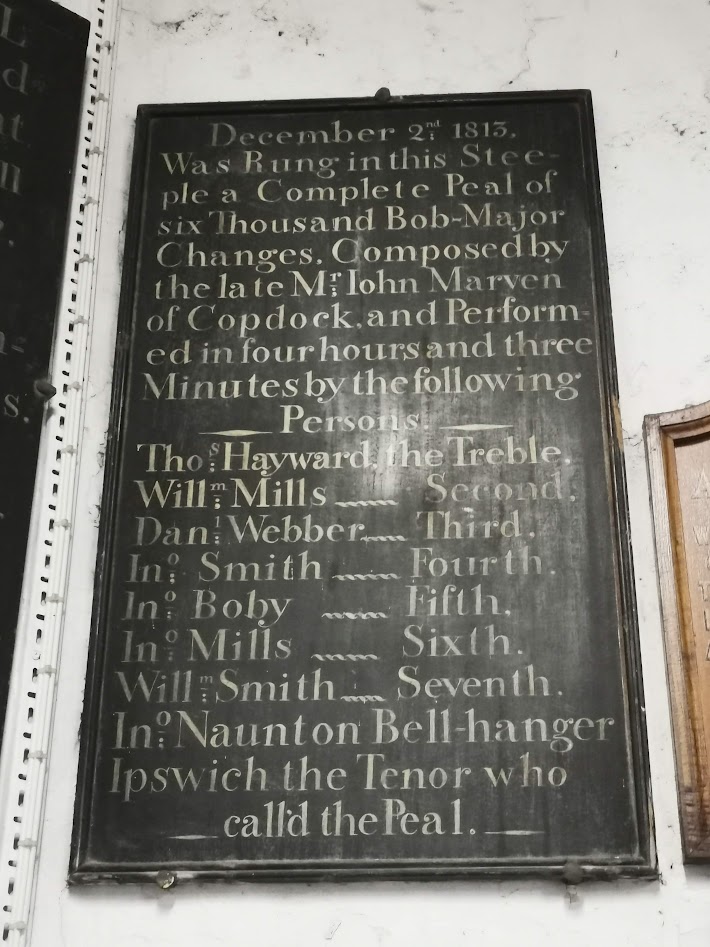 December 2nd 1813.
Was Rung in this Stee-
ple a Complete Peal of
six Thousand Bob-Major
Changes, Composed by
the late Mr Iohn Marven
of Copdock, and Perform-
ed in four hours and three
Minutes by the following
Persons.
Thos Hayward, the Treble.
Willm Mills Second.
Danl Webber Third.
Ino Smith Fourth.
Ino Boby Fifth.
Ino Mills Sixth.
Willm Smith Seventh.
Ino Naunton Bell-hanger
Ipswich the Tenor who
call'd the Peal.